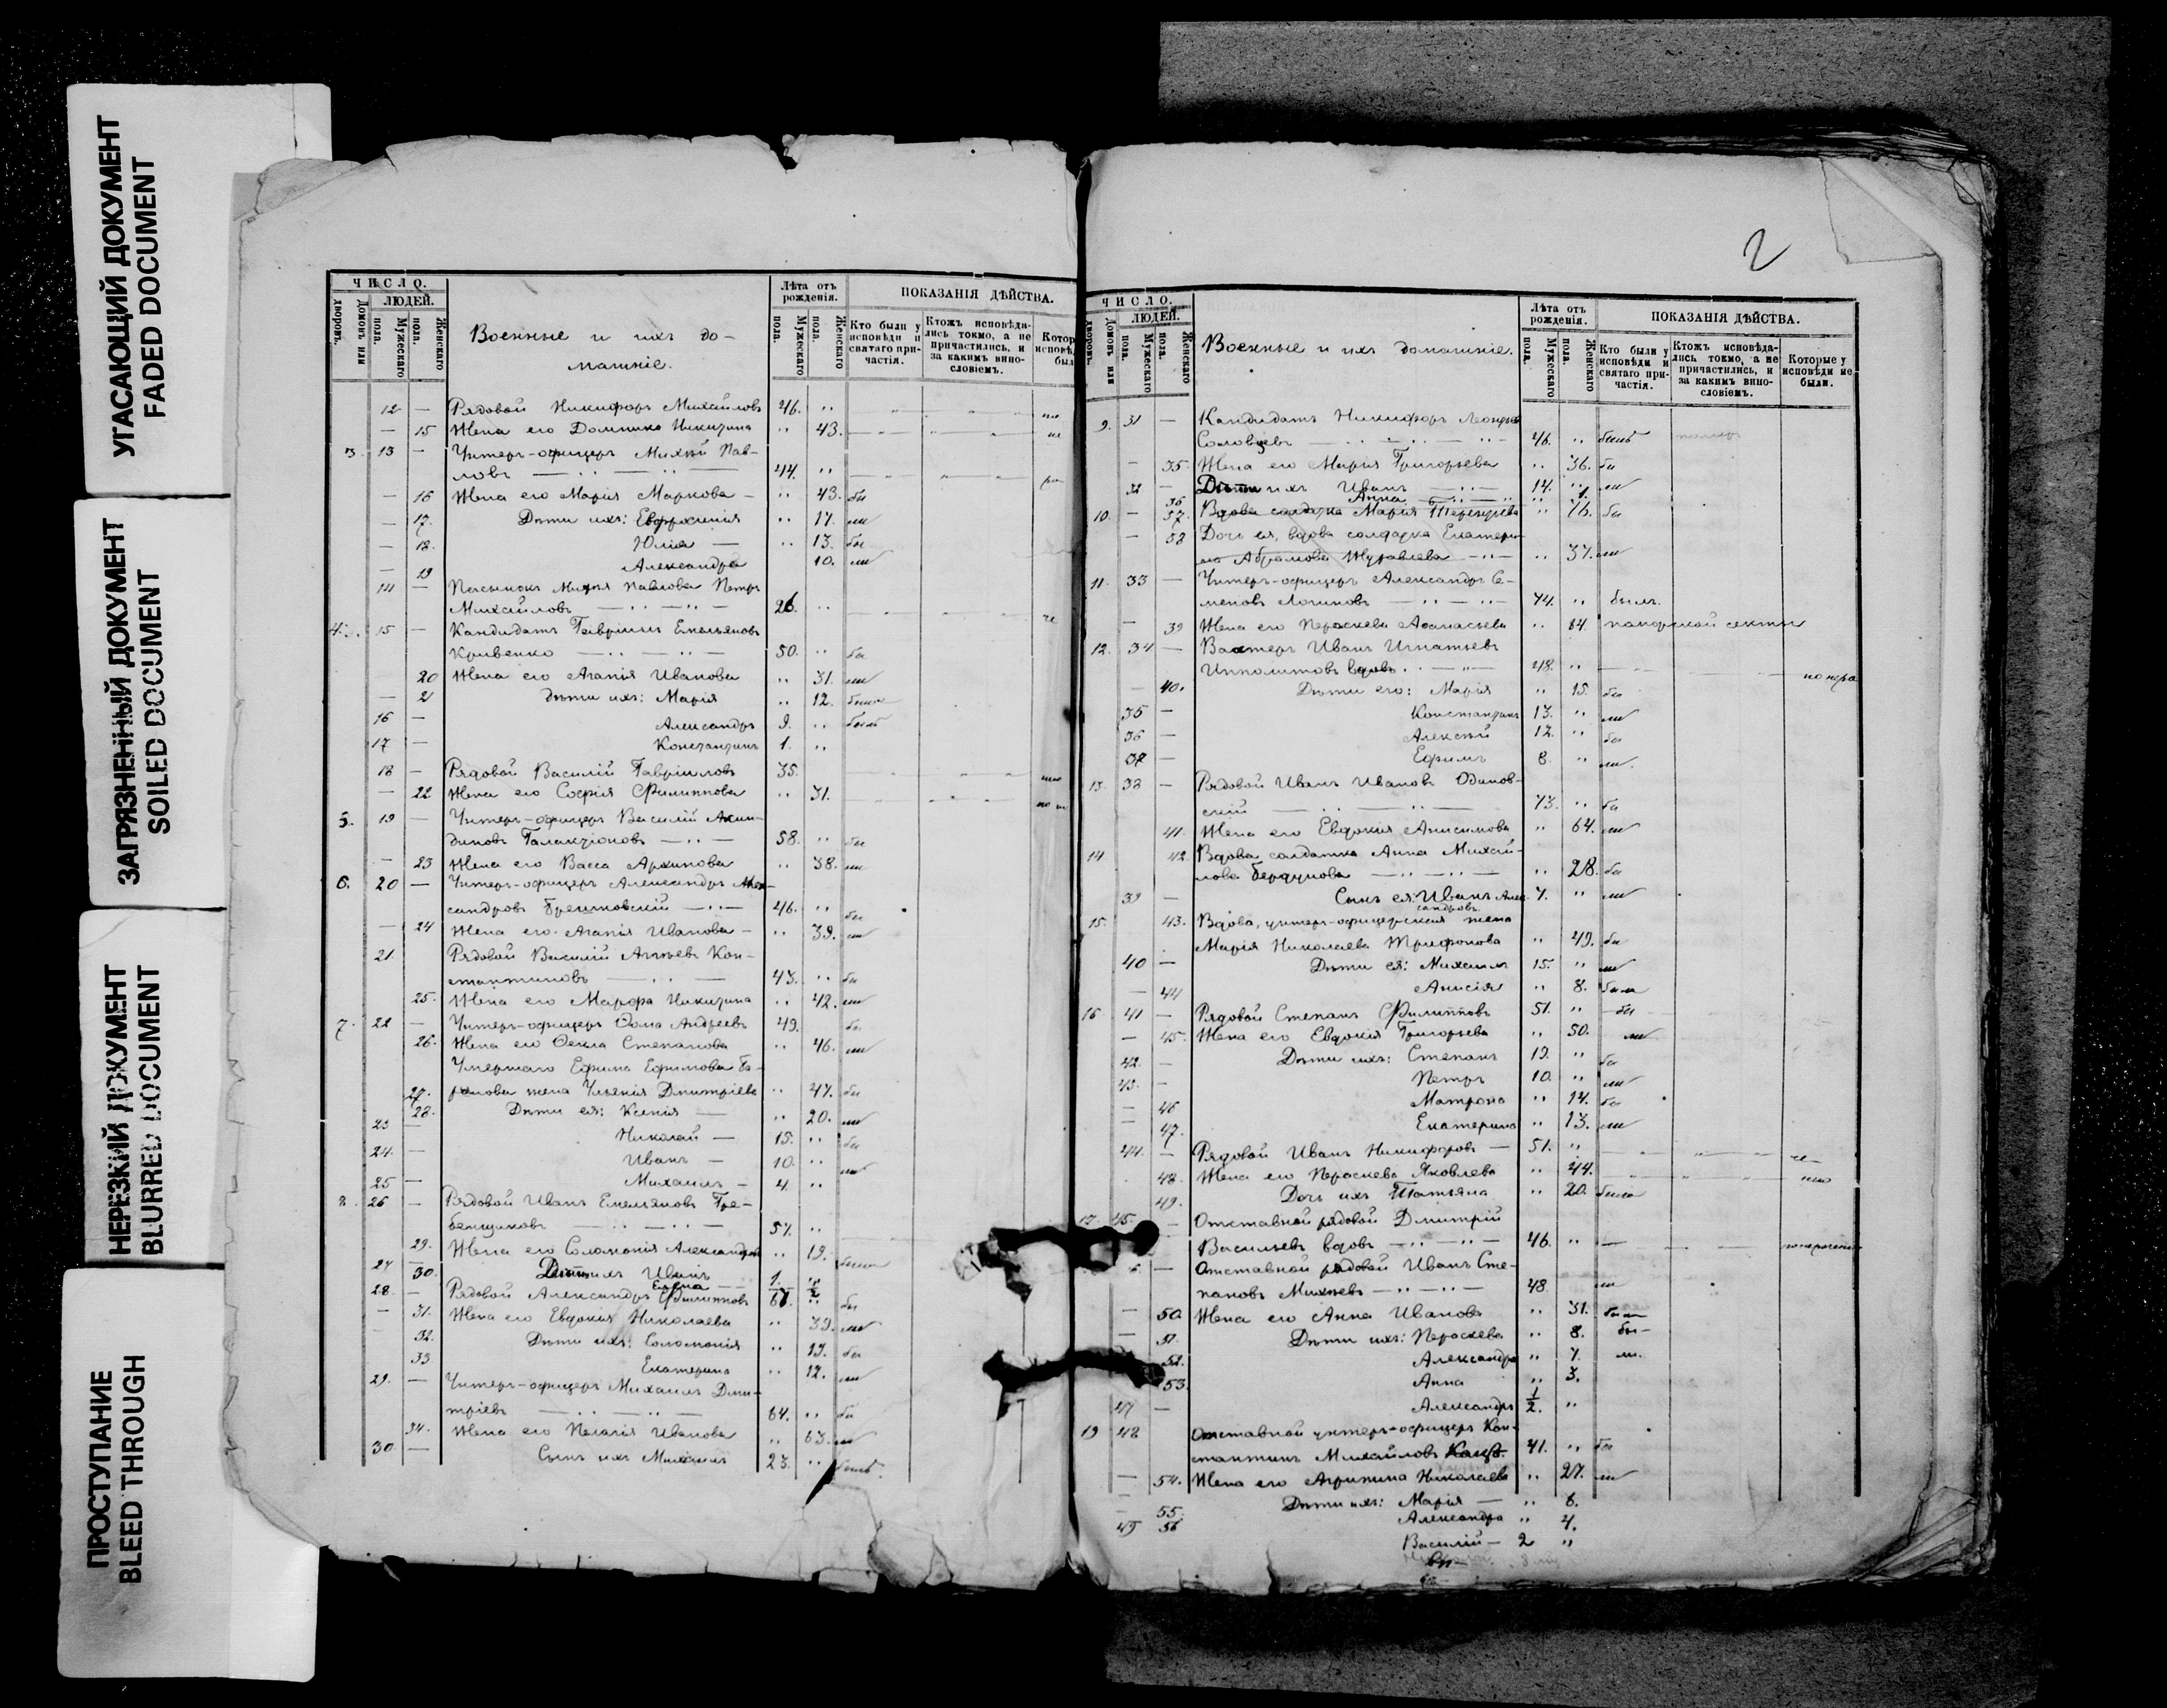 УГАСАЮЩИЙ ДОКУМЕНТ
FADED DOCUMENT
ЗАГРЯЗНЕННЫЙ ДОКУМЕНТ
SOILED DOCUMENT
НЕРЕЗКИЙ ДОКУМЕНТ
BLURRED DOCUMENT
ПРОСТУПАНИЕ
BLEED THROUGH
ЧИСЛО.
ЛЮДЕЙ.
Домовъ или дворовъ.
Мужескаго пола.
Женскаго пола.
Военные и ихъ до-
машніе.
Лѣта отъ рожденія.
Мужескаго пола.
Женскаго пола.
ПОКАЗАНІЯ ДѢЙСТВА.
Кто были у исповѣди и святаго причастія.
Ктожъ исповѣдались токмо, а не причастились, и за какимъ винословіемъ.
12 — Рядовой Никифоръ Михайловъ 46. "
— 15 Жена его Домника Никитина " 43.
3. 13 — Унтеръ-офицеръ Михей Пав-
ловъ 44. "
— 16 Жена его Марія Маркова — " 43. бы
— 17. Дѣти ихъ: Евфросинія " 17. ли
— 18. Юлія — " 13. бы
— 19 Александра 10. ли
14 — Пасынокъ Михея Павлова Петръ
Михайловъ 26. "
4. 15 — Кандидатъ Гавріилъ Емельяновъ
Кривенко 50. " бы
20 Жена его Агапія Иванова " 31. ли
— 21 дѣти ихъ: Марія " 12. была
16 — Александръ 9. " былъ
17 — Константинъ 1. "
18 — Рядовой Василій Гавріиловъ 35.
— 22 Жена его Софія Филиппова " 31.
5. 19 — Унтеръ-офицеръ Василій Акин-
диновъ Галактіоновъ 58. " бы
— 23 Жена его Васса Архипова " 38. ли
6. 20 — Унтеръ-офицеръ Александръ Алек-
сандровъ 46. " бы
— 24 Жена его Агапія Иванова — " 39. ли
21 Рядовой Василій Кон-
стантиновъ 43. " бы
25. Жена его Марфа Никитина " 42. ли
7. 22 — Унтеръ-офицеръ Ѳома Андреевъ 49. бы
26. Жена его Ѳекла Степанова " 46. ли
Умершаго Ефима Ефимова
27. жена Дмитріева " 47. бы
28. Дѣти ея: Ксенія " 20. ли
23 — Николай — 15. " бы
24. — Иванъ — 10. " ли
25 — Михаилъ — 4. "
8. 26 — Рядовой Иванъ Емельяновъ Гре-
бенщиковъ 57. "
29. Жена его Соломонія Александрова " 19. была
27 — Иванъ 1. "
30. "
28. — Рядовой Александръ Филипповъ 67. " бы
— 31. Жена его Евдокія Николаева " 39. ли
32. Дѣти ихъ: Соломонія " 19. бы
33 Екатерина " 12. ли
29. — Унтеръ-офицеръ Михаилъ Дми-
тріевъ 64. " бы
34. Жена его Пелагія Иванова " 63. ли
30 — Сынъ ихъ Михаилъ 23. " былъ.
2
ЧИСЛО.
ЛЮДЕЙ.
Домовъ или дворовъ.
Мужескаго пола.
Женскаго пола.
Военные и ихъ домашніе.
Лѣта отъ рожденія.
Мужескаго пола.
Женскаго пола.
ПОКАЗАНІЯ ДѢЙСТВА.
Кто были у исповѣди и святаго причастія.
Ктожъ исповѣдались токмо, а не причастились, и за какимъ винословіемъ.
Которые у исповѣди не были.
9. 31 — Кандидатъ Никифоръ
Соловьевъ 46. " былъ
— 35. Жена его Марія Григорьева " 36. бы
32 — Дѣти ихъ Иванъ 14. " ли
36 Анна " 1.
10. — 37. Вдова солдатка Марія Терентіева " 76. бы
— 38 Дочь ея, вдова солдатка Екатери-
на Абрамова Журавлева " 37. ли
11. 33 — Унтеръ-офицеръ Александръ Се-
меновъ Логиновъ 74. " былъ.
— 39 Жена его Параскева Аѳанасьева " 64. поморской секты
12. 34 — Вахтеръ Иванъ Игнатьевъ
Ипполитовъ вдовъ 48. "
— 40. Дѣти его: Марія " 15. бы
35 — Константинъ 13. " ли
36 — Алексѣй 12. " бы
37 — Ефимъ 8. " ли.
13. 38 — Рядовой Иванъ Ивановъ Одинов-
скій 73. " бы
41. Жена его Евдокія Анисимова " 64. ли
14 42. Вдова солдатка Анна Михай-
лова " 28. бы
39 — Сынъ ея: Иванъ Алек-
сандровъ 7. " ли
15. 43. Вдова, унтеръ-офицерская жена
Марія Николаева Трифонова " 49. бы
40 — Дѣти ея: Михаилъ 15. " ли
— 44 Анисія " 8. была
16 41 — Рядовой Степанъ Филипповъ 51. " бы
— 45. Жена его Евдокія Григорьева " 50. ли
42. — Дѣти ихъ: Степанъ 19. " бы
43. — Петръ 10. " ли
— 46 Матрона " 14. бы
— 47. Екатерина " 13. ли
44. — Рядовой Иванъ Никифоровъ — 51. "
48. Жена его Параскева Яковлева " 44.
49. Дочь ихъ Татьяна " 20. была
17. 45. — Отставной рядовой Дмитрій
Васильевъ вдовъ 46. "
— Отставной рядовой Иванъ Сте-
пановъ Михѣевъ 48. ли
— 50. Жена его Анна Иванова " 31. были
— 51. Дѣти ихъ: Параскева " 8. бы-
52. Александра " 7. ли.
53. Анна " 3.
47 — Александръ 1/2. "
19 48 Отставной унтеръ-офицеръ Кон-
стантинъ Михайловъ 41. " бы
— 54. Жена его Агрипина Николаева " 27. ли
— 55. Дѣти ихъ: Марія — " 6.
56 Александра " 4.
49 Василій — 2 "